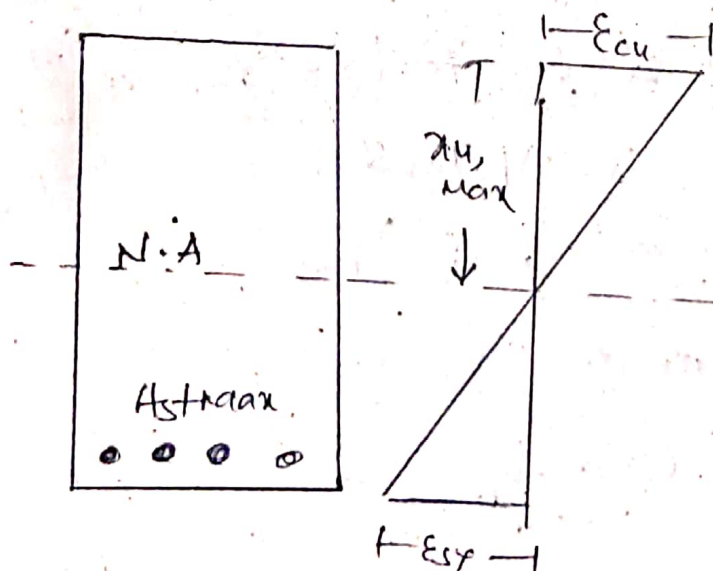 εcu
T
xu,
max
N.A
Astmax
εsy